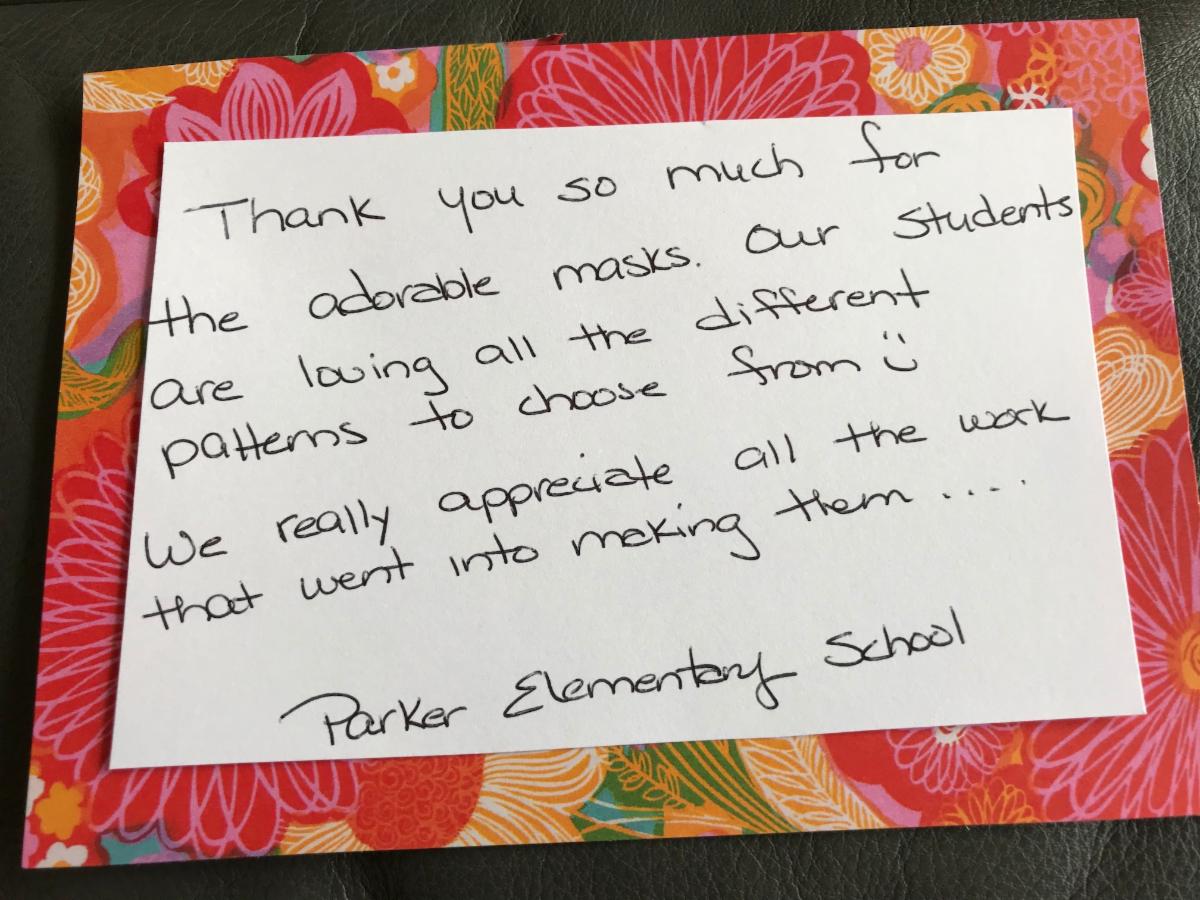 Thank you so much for
the adorable masks. Our students
are loving all the different
patterns to choose from ☺
We really appreciate all the work
that went into making them .....
Parker Elementary School